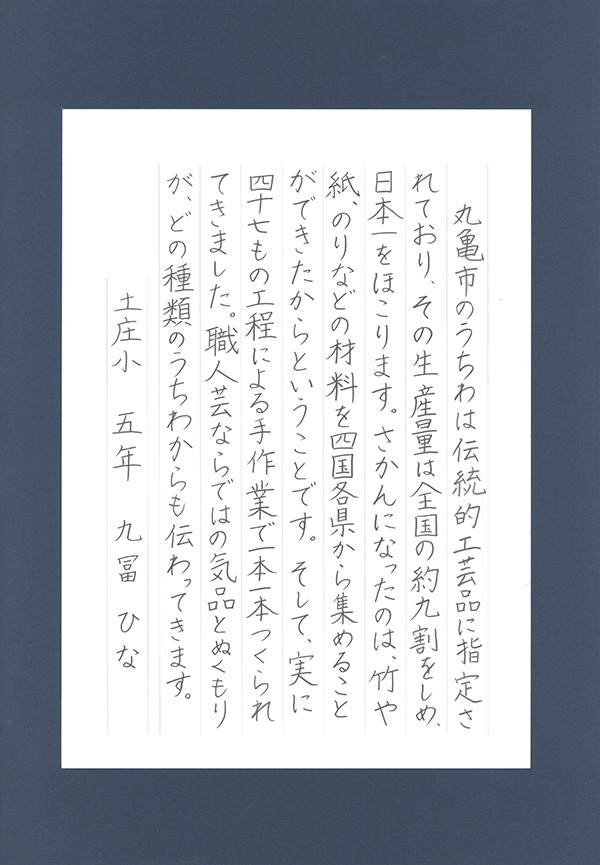 丸亀市のうちわは伝統的工芸品に指定さ
れており、その生産量は全国の約九割をしめ、
日本一をほこります。さかんになったのは、竹や
紙、のりなどの材料を四国各県から集めること
ができたからということです。そして、実に
四十七もの工程による手作業で一本一本つくられ
てきました。職人芸ならではの気品とぬくもり
が、どの種類のうちわからも伝わってきます。
土庄小 五年 九冨 ひな